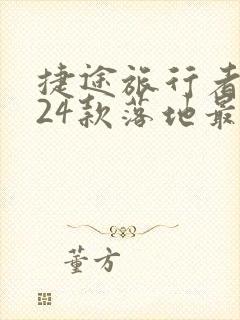 捷途旅行者
24款落地最
董方